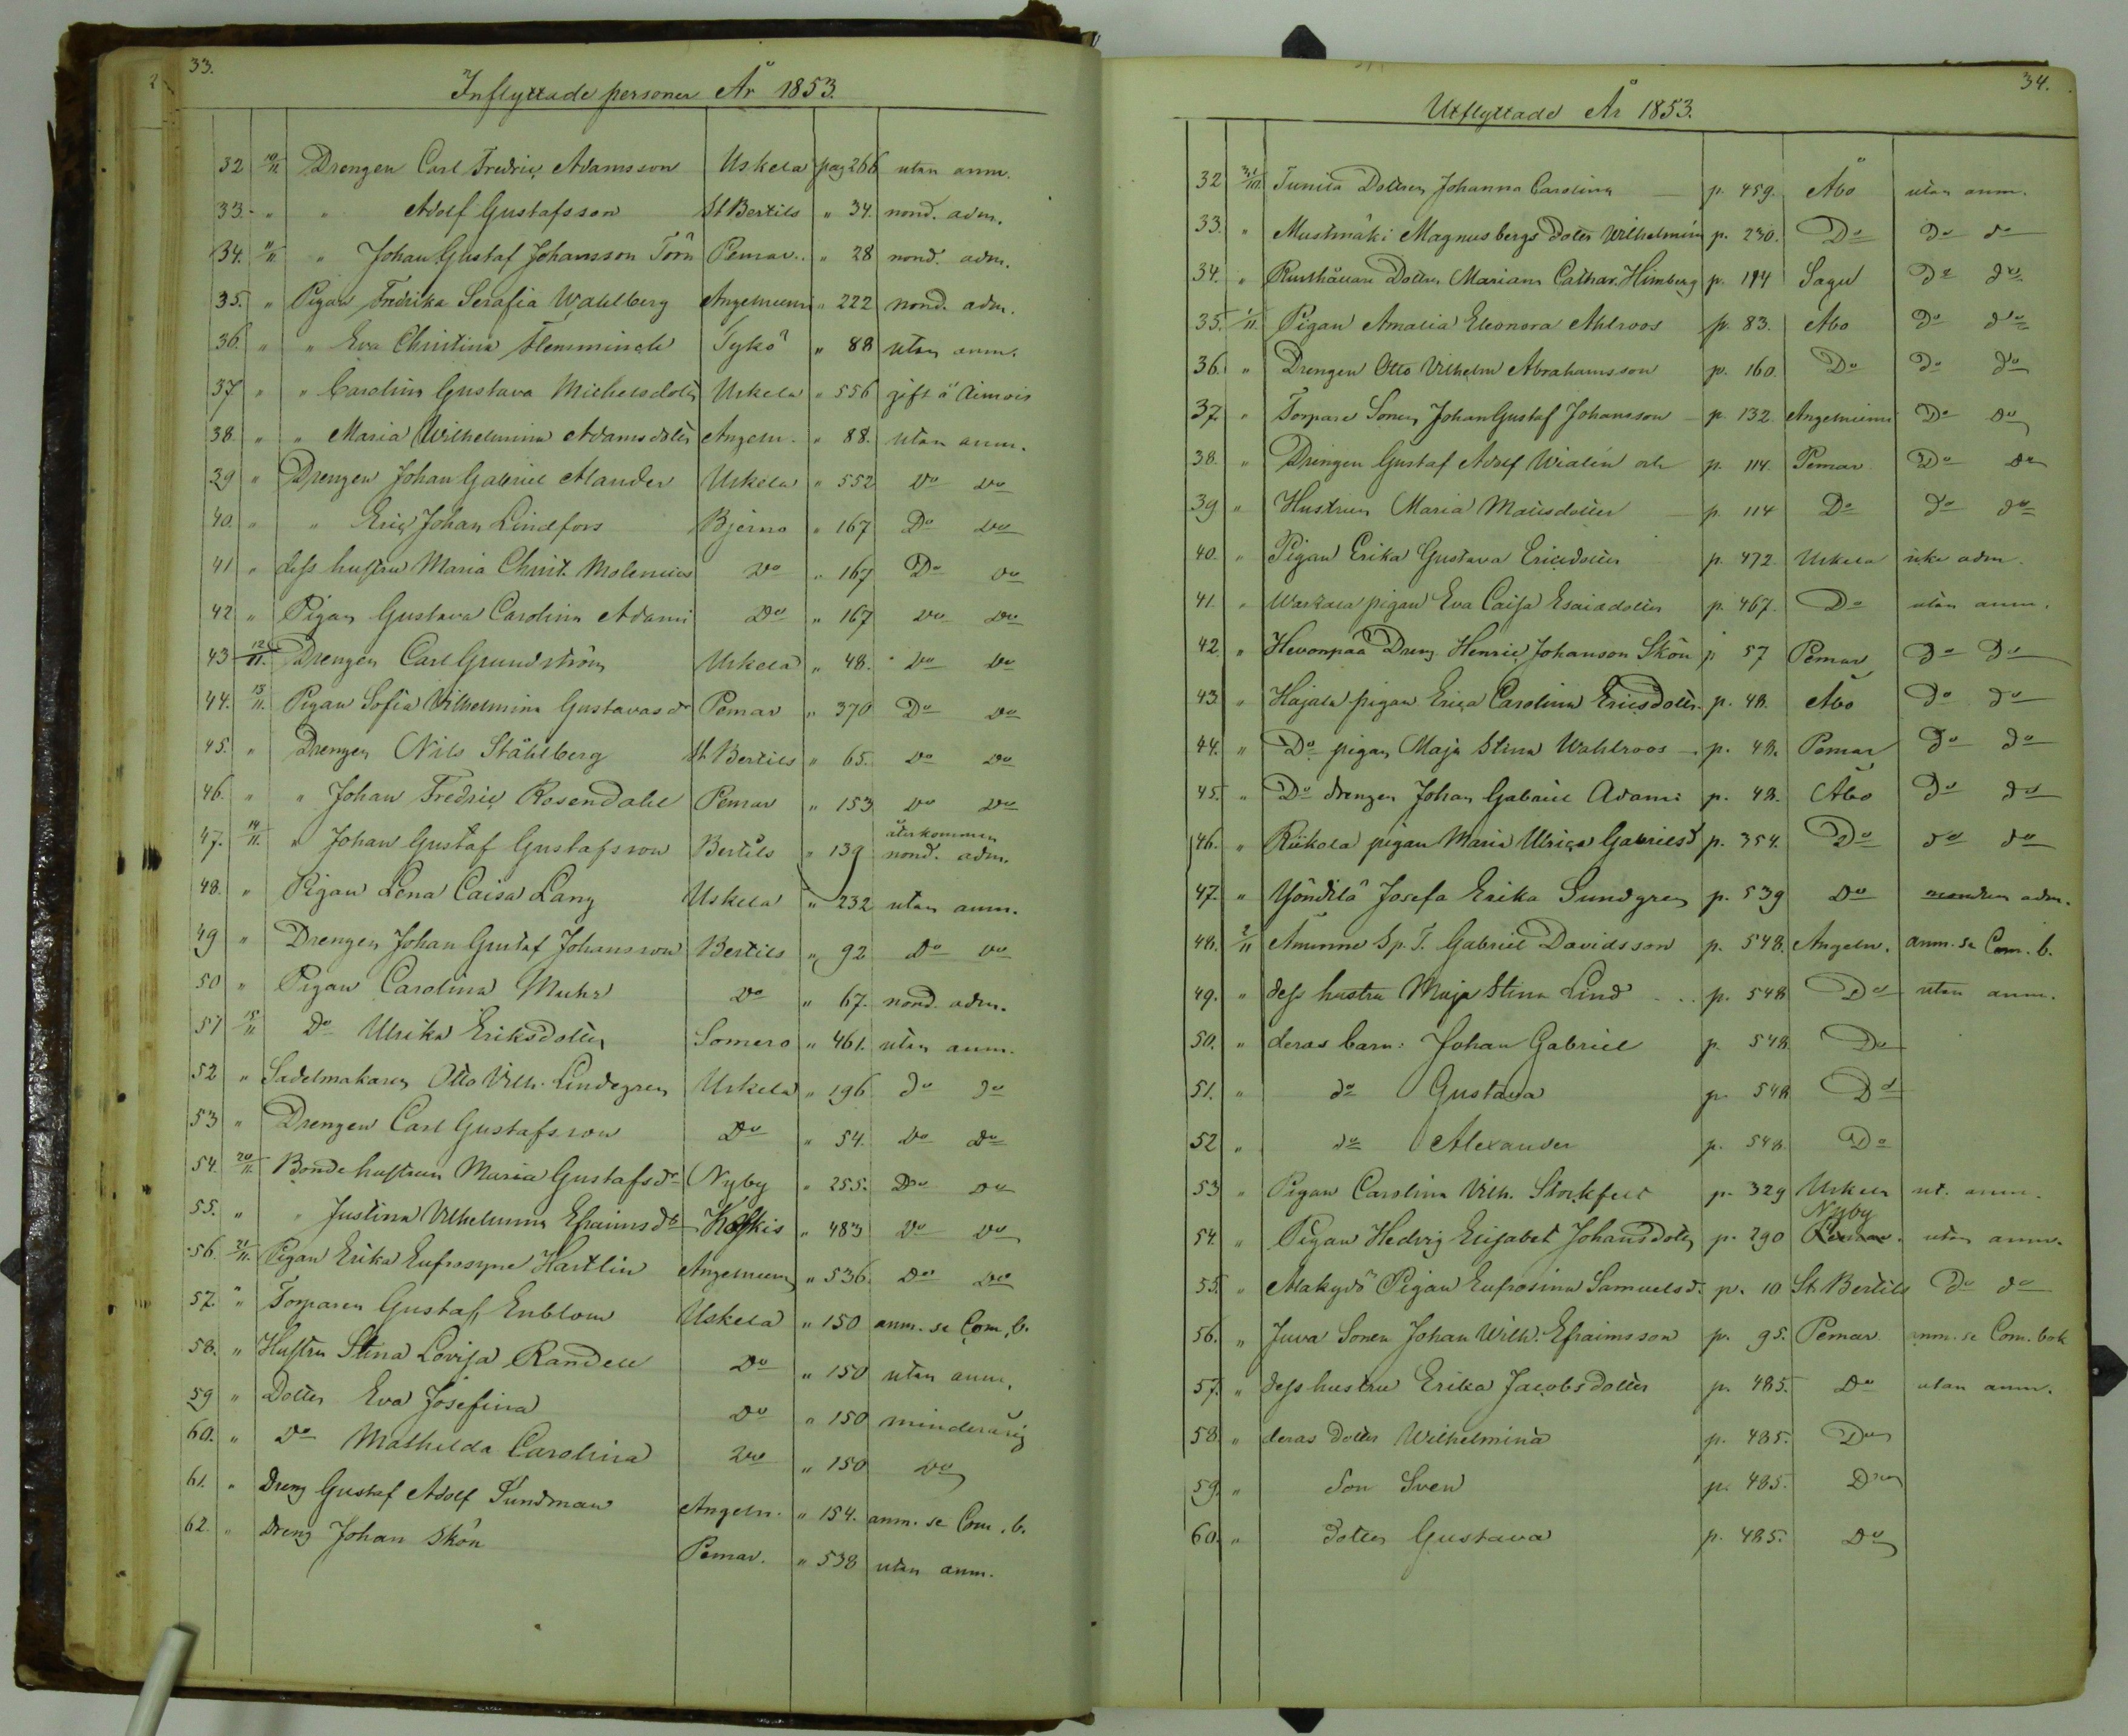 33.
Inflyttade personer År 1853.
32 10/11 Drengen Carl Fredric Adamsson Uskela pag 266 utan anm.
33. " " Adolf Gustafsson St Bertils " 34. nond. adm.
34. 11/11 " Johan Gustaf Johansson Törn Pemar. " 28 nond. adm.
35. " Pigan Fredrika Serafia Wahlberg Angelniemi " 222 nond. adm.
36. " " Eva Christina Flemminck Tykö " 88 utan anm.
37 " " Carolina Gustava Michelsdoter Uskela " 556 gift å Aimois
38. " " Maria Wilhelmina Adamsdoter Angeln. " 88. utan anm.
39 " Drengen Johan Gabriel Alander Uskela " 552 Do Do
40. " " Eric Johan Lindfors Bjerno " 167 Do Do
41 " dess hustru Maria Christ. Molenius Do " 167 Do Do
42 " Pigan Gustava Carolina Adami Do " 167 Do Do
43 12/11. Drengen Carl Grundström Uskela " 48. Do Do
44. 13/11. Pigan Sofia Vilhelmina Gustavasdr Pemar " 370 Do Do
45. " Drengen Nils Ståhlberg St Bertils " 65. Do Do
46. " " Johan Fredric Rosendahl Pemar " 153 Do Do
47. 14/11. " Johan Gustaf Gustafsson Bertils " 139 återkommen nond. adm.
48. " Pigan Lena Caisa Lang Uskela " 232 utan anm.
49 " Drengen Johan Gustaf Johansson Bertils " 92 Do Do
50 " Pigan Carolina Muhr Do " 67. nond. adm.
51 15/11 Do Ulrika Eriksdotter Somero " 461. utan anm.
52 " Sadelmakaren Otto Vilh. Lindegren Uskela " 196 do do
53 " Drengen Carl Gustafsson Do " 54. Do Do
54. 20/11 Bondehustrun Maria Gustafsdr Nyby " 255. Do Do
55. " " Justina Vilhelmina Efraimsdr Koskis " 483 Do Do
56. 21/11. Pigan Erika Eufrosyne Hartlin Angelniemi " 536. Do Do
57. " Torparen Gustaf Enblom Uskela " 150 anm. se Com. b.
58. " Hustru Stina Lovisa Randell Do " 150 utan anm.
59 " Dotter Eva Josefina Do " 150 minderårig
60. " Do Mathilda Carolina Do " 150 Do
61. " Dreng Gustaf Adolf Sundman Angeln. " 154. anm. se Com. b.
62. " Dreng Johan Skön Pemar. " 538 utan anm.
34.
Utflyttade År 1853.
32 31/10. Tunila Dottren Johanna Carolina p. 459. Åbo utan anm.
33. " Mustmäki Magnusbergs doter Wilhelmina p. 230. Do do do
34. " Rusthållare Dottren Mariam Cathar. Himberg p. 194 Sagu do do
35. 1/11. Pigan Amalia Eleonora Ahlroos p. 83. Åbo do do
36. " Drengen Otto Vilhelm Abrahamsson p. 160. Do do do
37. " Torpare Sonen Johan Gustaf Johansson p. 132. Angelniemi Do Do
38. " Drengen Gustaf Adolf Wialén och p. 114. Pemar Do Do
39 " Hustrun Maria Matsdotter p. 114 Do do do
40. " Pigan Erika Gustava Ericsdotter p. 472 Uskela icke adm.
41. " Waskala pigan Eva Caisa Esaiadotter p. 467. Do utan anm.
42 " Hevonpää Dreng Henric Johanson Skön p. 57 Pemar do Do
43. " Hajala pigan Erica Carolina Ericsdotter p. 48. Åbo do do
44. " Do pigan Maja Stina Wahlroos p. 48. Pemar do do
45. " Do drengen Johan Gabriel Adami p. 48. Åbo do do
46. " Riikola pigan Maria Ulrica Gabrielsd p. 354. Do do do
47. " Yönditö Josefa Erika Sundgren p. 539 Do nondum adm.
48. 2/11 Ammine Sp. T. Gabriel Davidsson p. 548. Angeln. anm. se Com. b.
49. " dess hustru Maja Stina Lind p. 548 Do utan anm.
50. " deras barn: Johan Gabriel p. 548. Do
51. " do Gustava p. 548 Do
52 " do Alexander p. 548. Do
53 " Pigan Carolina Vilh. Stockfelt p. 329 Uskela ut. anm.
54. " Pigan Hedvig Elisabet Johansdoter p. 290 Nyby utan anm.
55. " Alakydö Pigan Eufrosina Samuelsd. p. 10 St Bertils Do do
56. " Juva Sonen Johan Wilh. Efraimsson p. 95. Pemar anm. se Com. bok
57. " dess hustru Erika Jacobsdotter p. 485. Do utan anm.
58. " deras dotter Wilhelmina p. 485. Do
59. " Son Sven p. 485. Do
60. " dotter Gustava p. 485. Do